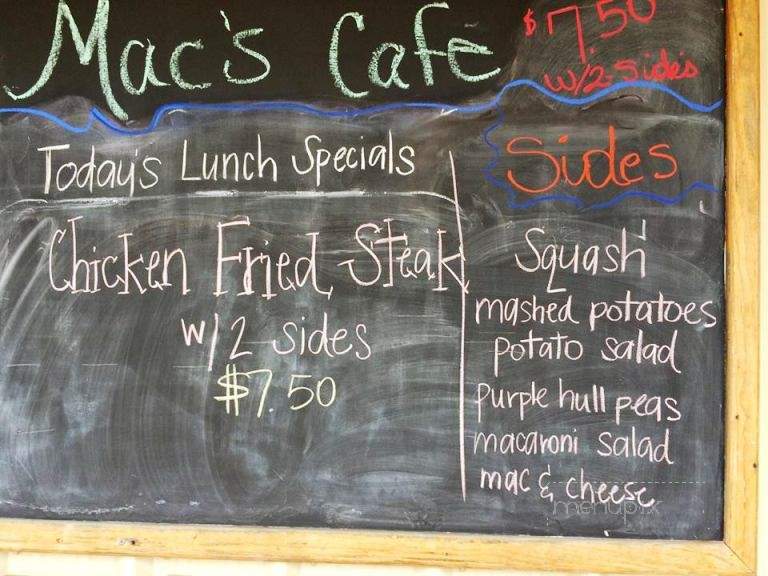 Mac's Cafe
$7.50
w/2-Sides
Today's Lunch Specials
Chicken Fried Steak
w/2 sides
$7.50
Sides
Squash
mashed potatoes
potato salad
purple hull peas
macaroni salad
mac & cheese
menupix